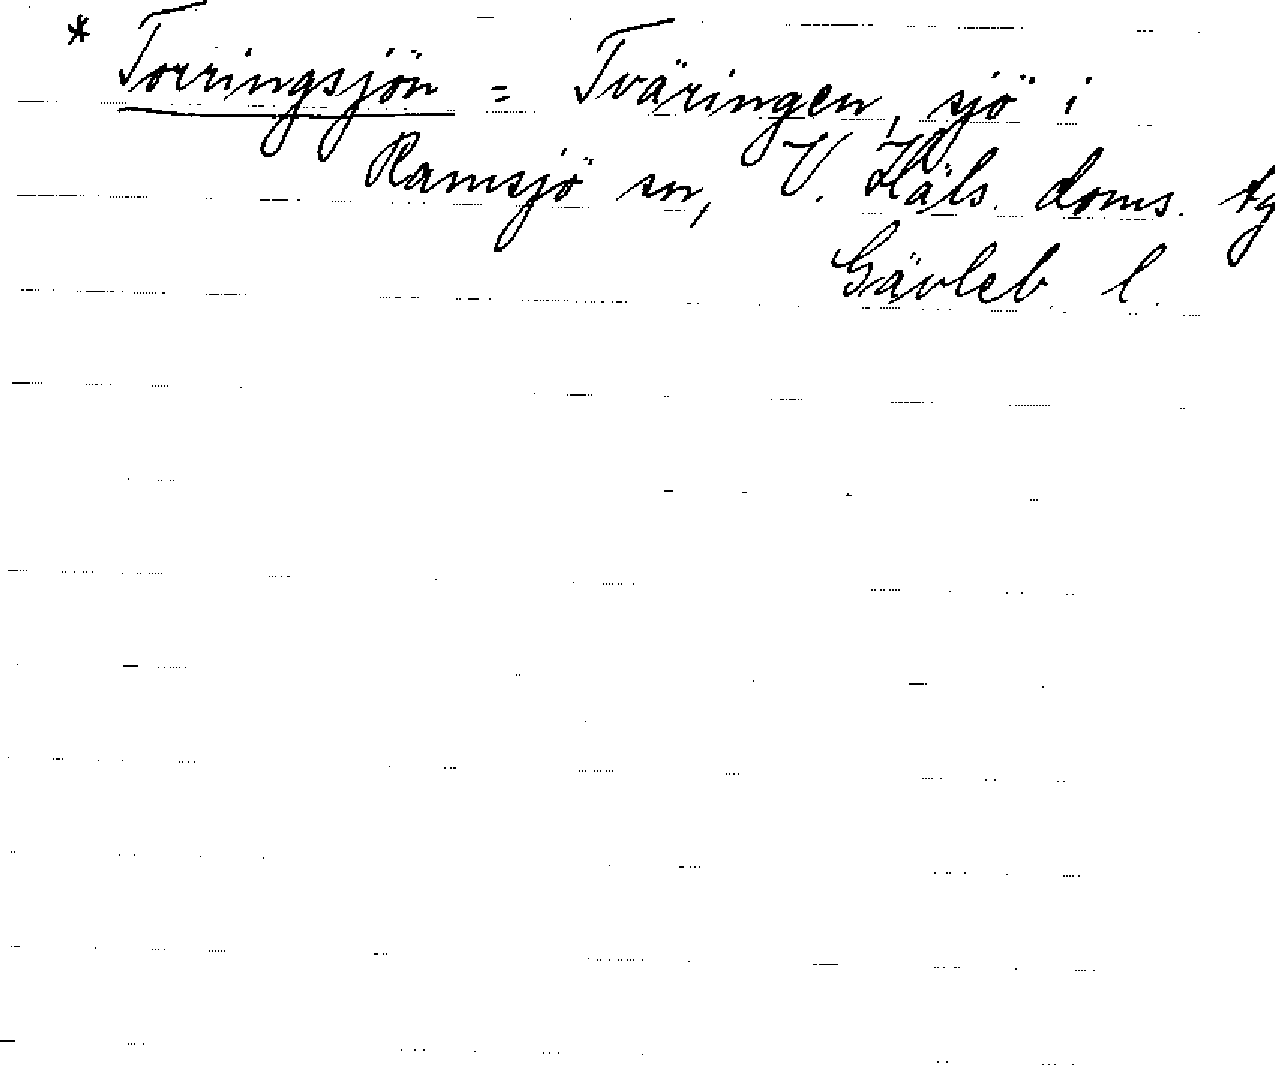 * Torringsjön = Tväringen, sjö i
Ramsjö sn, V. Häls. doms. tg
Gävleb. l.